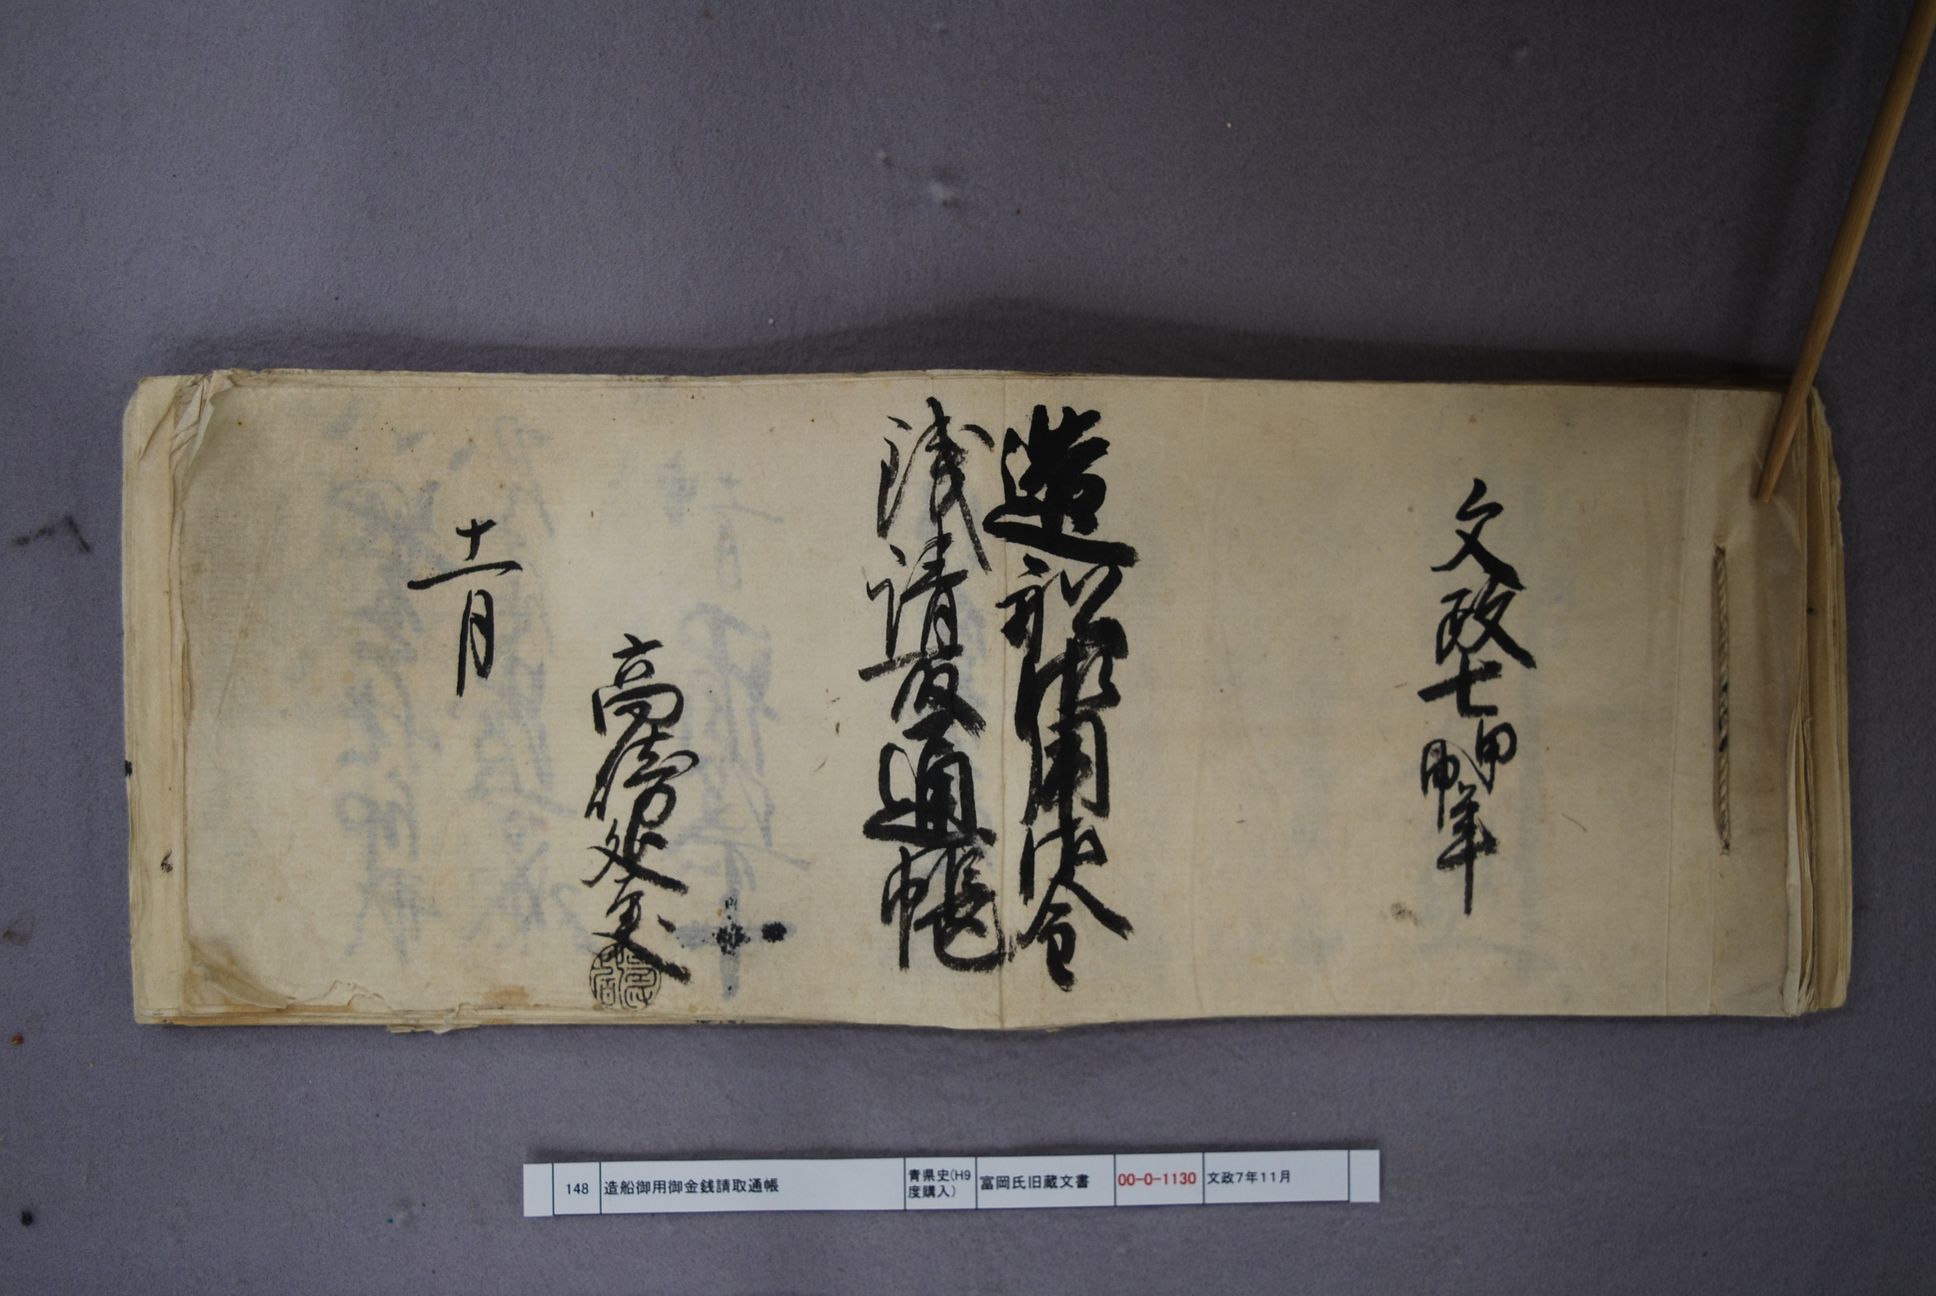 文政七甲申年
造船御用御金
銭請取通帳
高
十一月
148 造船御用御金銭請取通帳 青県史(H9度購入) 富岡氏旧蔵文書 00-0-1130 文政7年11月